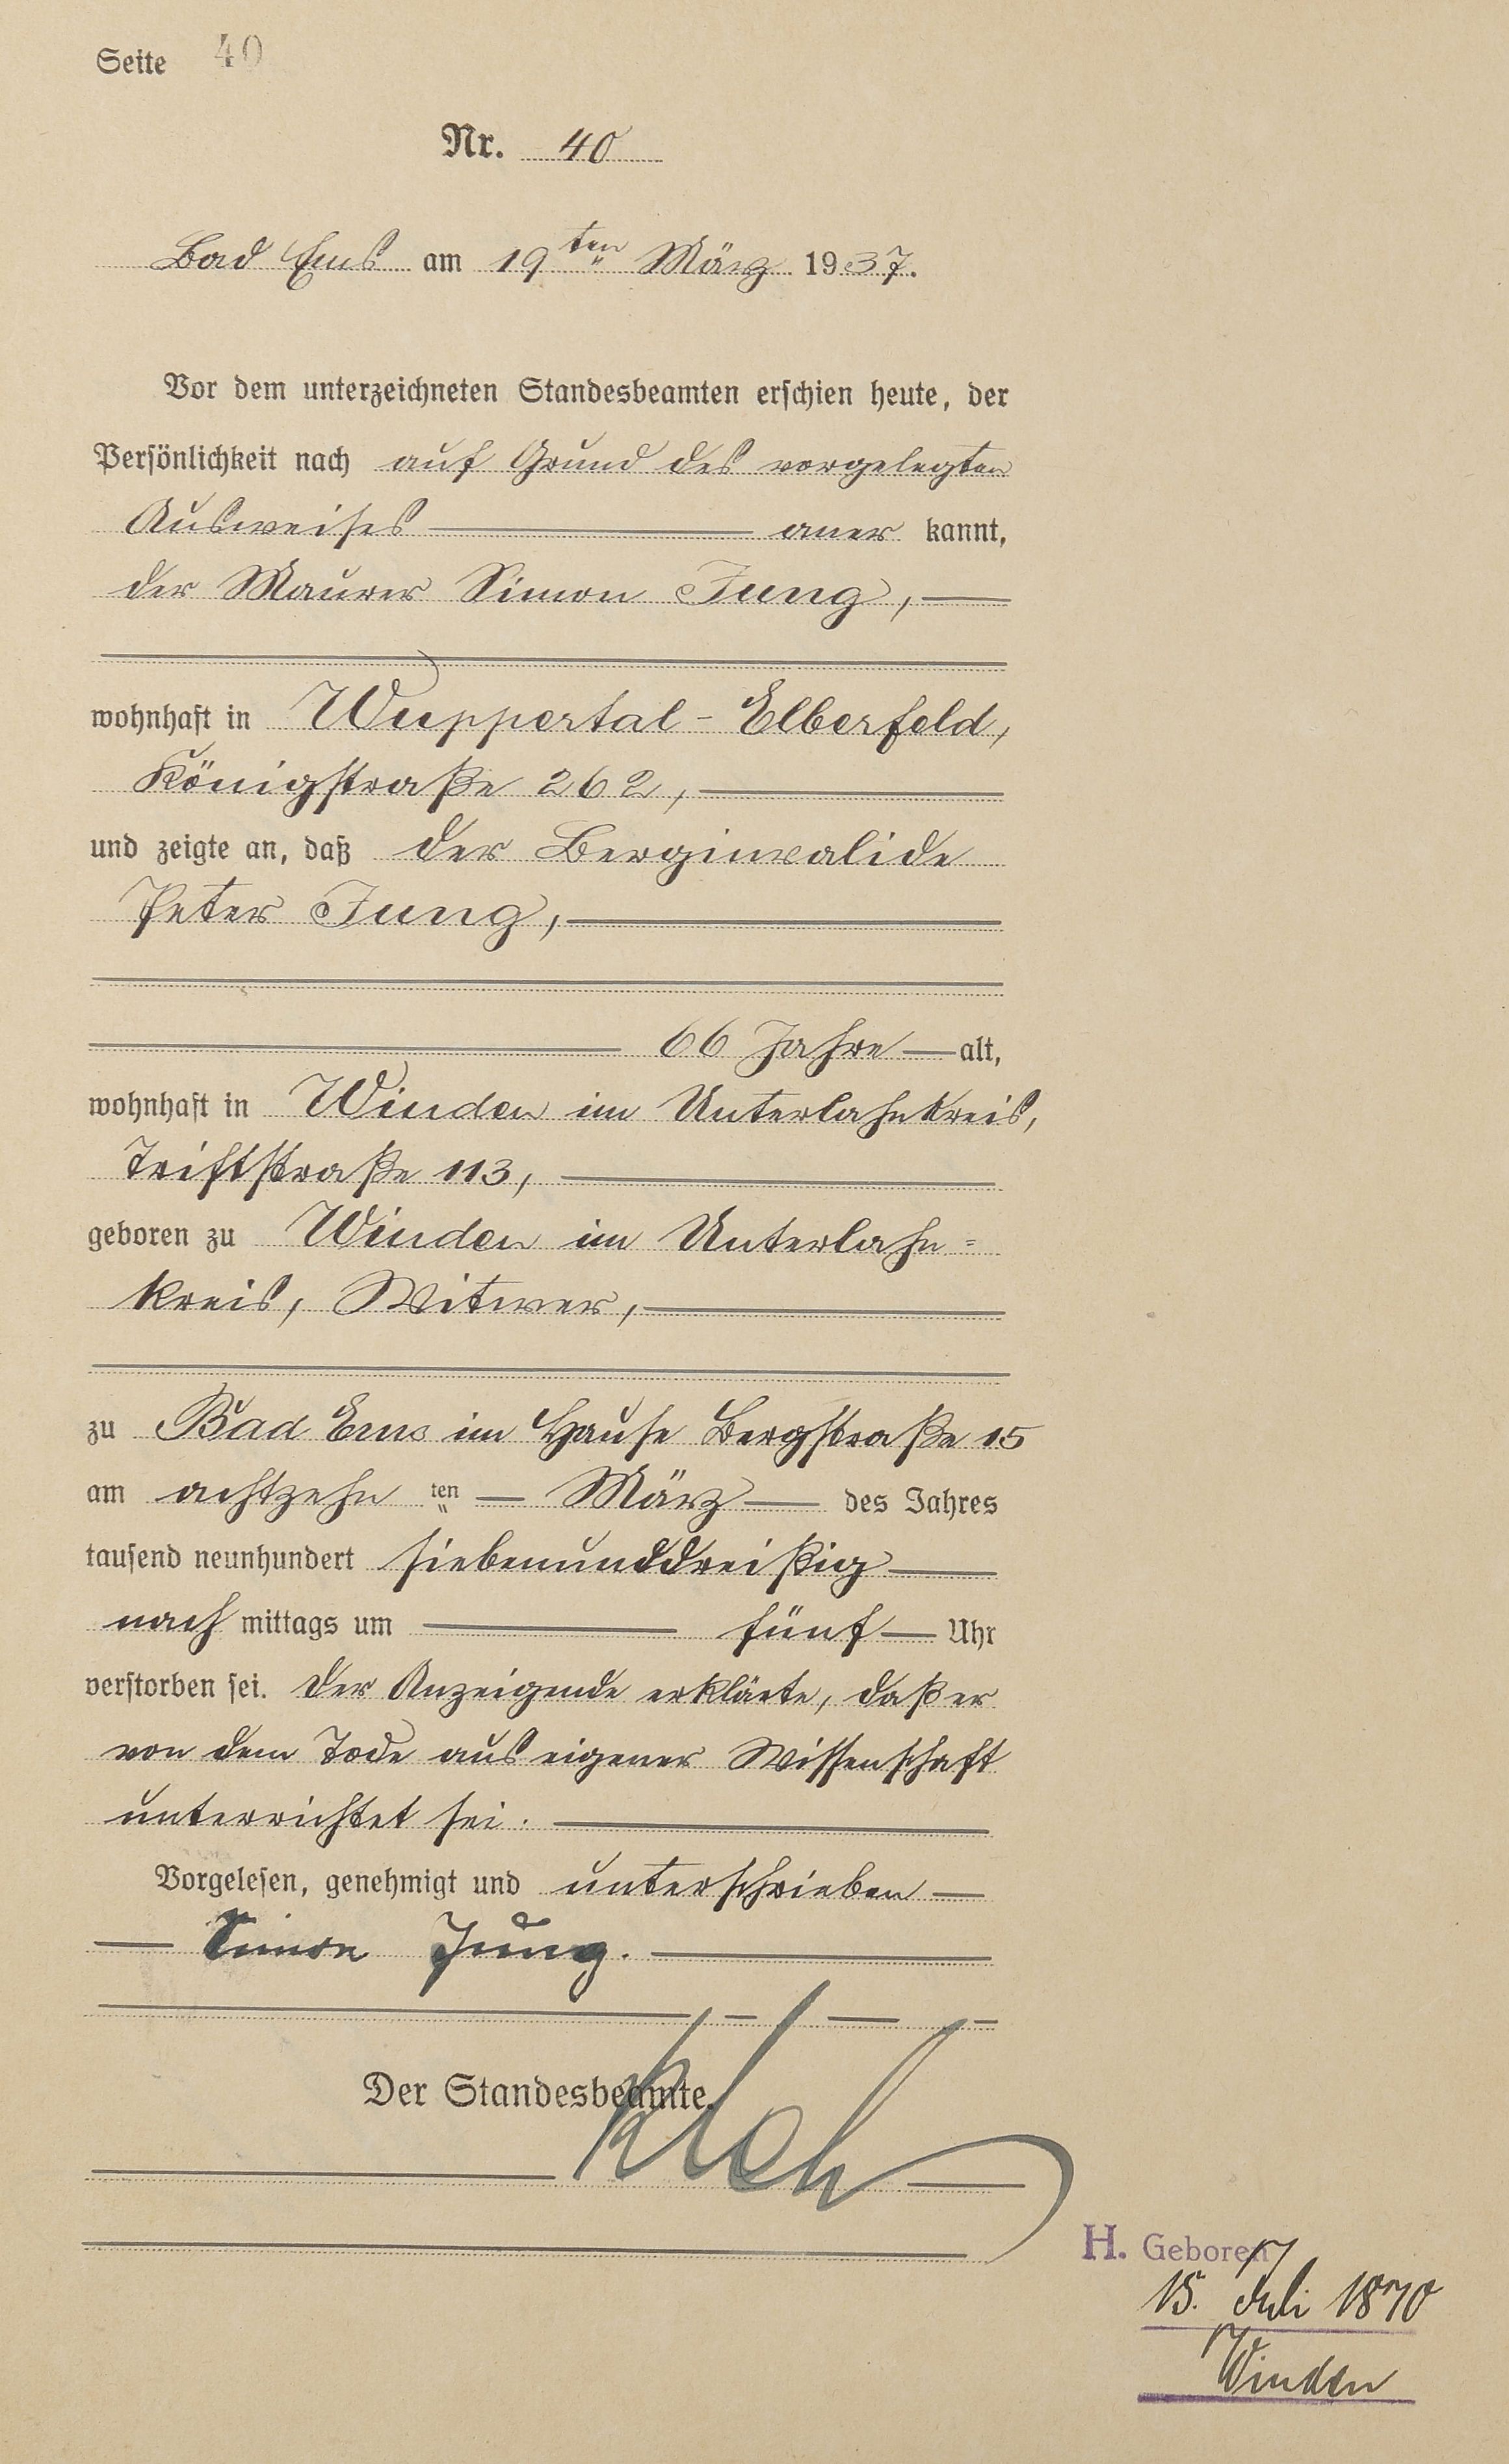 Seite 40
Nr. 40
Bad Ems am 19ten März 1937.
Vor dem unterzeichneten Standesbeamten erschien heute, der
Persönlichkeit nach auf Grund des vorgelegten
Ausweises aner kannt,
der Maurer Simon Jung,
wohnhaft in Wuppertal-Elberfeld,
Königstraße 262,
und zeigte an, daß der Berginvalide
Peter Jung,
66 Jahre alt,
wohnhaft in Winden im Unterlahnkreis,
Triftstraße 113,
geboren zu Winden im Unterlahn=
kreis, Witwer,
zu Bad Ems im Hause Bergstraße 15
am achtzehn ten März des Jahres
tausend neunhundert siebenunddreißig
nach mittags um fünf Uhr
verstorben sei. Der Anzeigende erklärte, daß er
von dem Tode aus eigener Wissenschaft
unterrichtet sei.
Vorgelesen, genehmigt und unterschrieben
Simon Jung.
Der Standesbeamte.
H. Geboren
15. Juli 1870
Winden